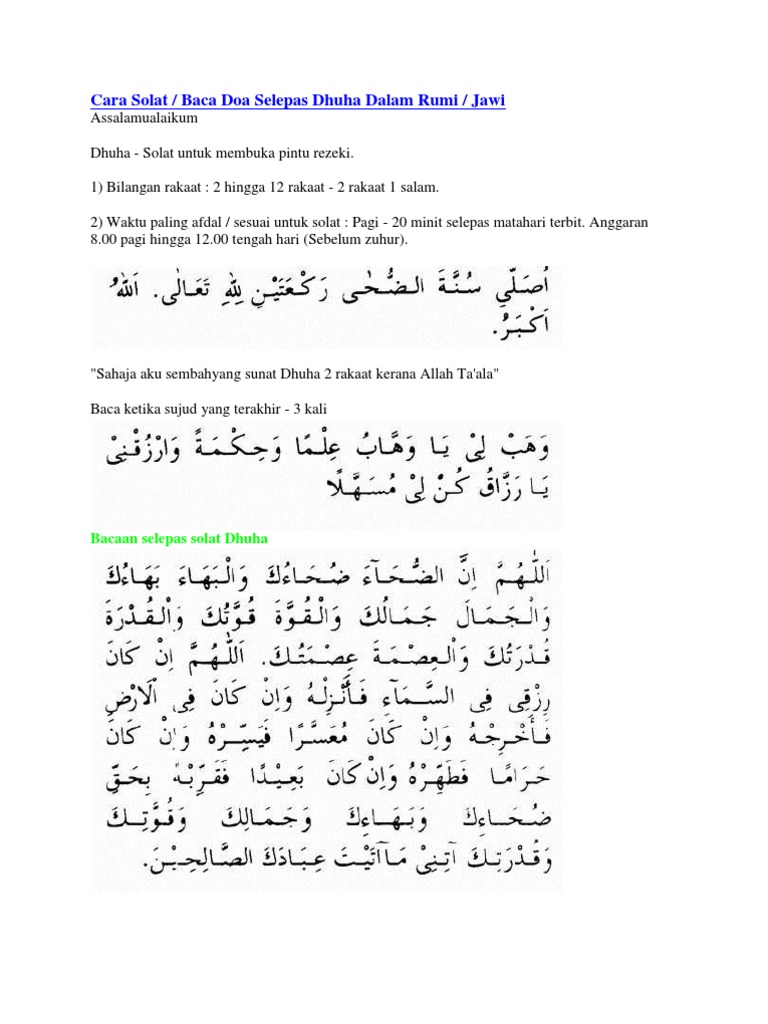 Cara Solat / Baca Doa Selepas Dhuha Dalam Rumi / Jawi
Assalamualaikum
Dhuha - Solat untuk membuka pintu rezeki.
1) Bilangan rakaat : 2 hingga 12 rakaat - 2 rakaat 1 salam.
2) Waktu paling afdal / sesuai untuk solat : Pagi - 20 minit selepas matahari terbit. Anggaran
8.00 pagi hingga 12.00 tengah hari (Sebelum zuhur).
اُصَلِّي سُنَّةَ الضُّحٰى رَكْعَتَيْنِ لِلّٰهِ تَعَالٰى. اَللّٰهُ
اَكْبَرُ.
"Sahaja aku sembahyang sunat Dhuha 2 rakaat kerana Allah Ta'ala"
Baca ketika sujud yang terakhir - 3 kali
وَهَبْ لِيْ يَا وَهَّابُ عِلْمًا وَحِكْمَةً وَارْزُقْنِيْ
يَا رَزَّاقُ كُنْ لِيْ مُسَهَّلًا
Bacaan selepas solat Dhuha
اَللّٰهُمَّ اِنَّ الضُّحَآءَ ضُحَاءُكَ وَالْبَهَاءَ بَهَاءُكَ
وَالْجَمَالَ جَمَالُكَ وَالْقُوَّةَ قُوَّتُكَ وَالْقُدْرَةَ
قُدْرَتُكَ وَالْعِصْمَةَ عِصْمَتُكَ. اَللّٰهُمَّ اِنْ كَانَ
رِزْقِي فِى السَّمَآءِ فَأَنْزِلْهُ وَاِنْ كَانَ فِى اْلَارْضِ
فَأَخْرِجْهُ وَاِنْ كَانَ مُعَسَّرًا فَيَسِّرْهُ وَاِنْ كَانَ
حَرَامًا فَطَهِّرْهُ وَاِنْ كَانَ بَعِيْدًا فَقَرِّبْهُ بِحَقِّ
ضُحَاءِكَ وَبَهَاءِكَ وَجَمَالِكَ وَقُوَّتِكَ
وَقُدْرَتِكَ آتِنِيْ مَآ آتَيْتَ عِبَادَكَ الصَّالِحِيْنَ.